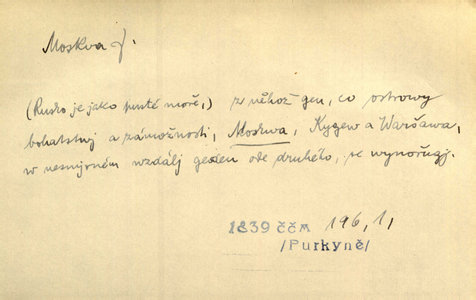 Moskva f.
(Rusko je jako pusté moře,) z něhož gen, co ostrowy
bohatstwj a zámožnosti, Moskwa, Kygew a Waršawa,
w nesmjrném wzdálj geden ode druhého, se wynořugj.
1839 ččm 196,1,
/Purkyně/